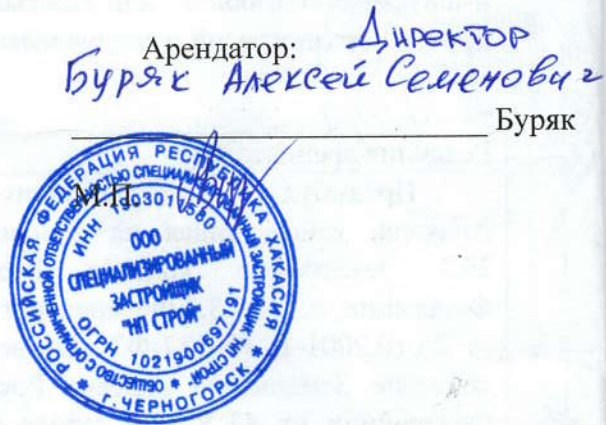 Арендатор: Директор
Буряк Алексей Семенович
Буряк
М.П.
РОССИЙСКАЯ ФЕДЕРАЦИЯ РЕСПУБЛИКА ХАКАСИЯ
* Г.ЧЕРНОГОРСК *
ОБЩЕСТВО С ОГРАНИЧЕННОЙ ОТВЕТСТВЕННОСТЬЮ СПЕЦИАЛИЗИРОВАННЫЙ ЗАСТРОЙЩИК "НП СТРОЙ" *
ИНН
ООО
СПЕЦИАЛИЗИРОВАННЫЙ
ЗАСТРОЙЩИК
"НП СТРОЙ"
ОГРН 1021900697191